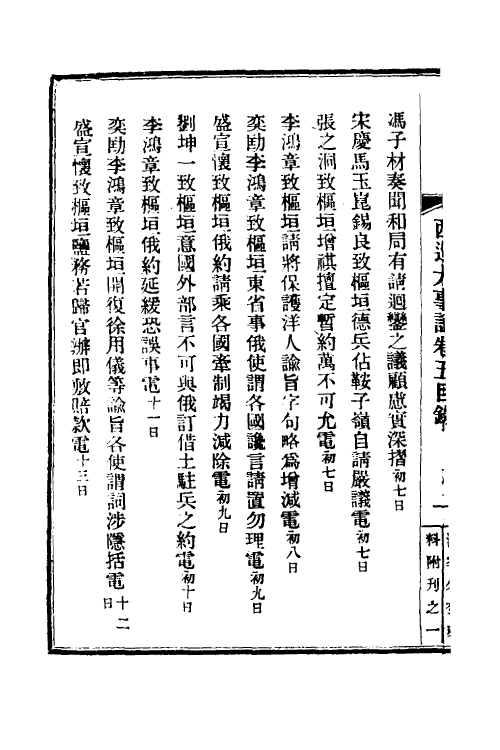 西巡大事記卷五目錄
料附刊之一
馮子材奏聞和局有請迴鑾之議顧慮實深摺初七日
宋慶馬玉崑錫良致樞垣德兵佔鞍子嶺自請嚴議電初七日
張之洞致樞垣增祺擅定暫約萬不可允電初七日
李鴻章致樞垣請將保護洋人諭旨字句略爲增減電初八日
奕劻李鴻章致樞垣東省事俄使謂各國讒言請置勿理電初九日
盛宣懷致樞垣俄約請乘各國牽制竭力減除電初九日
劉坤一致樞垣意國外部言不可與俄訂借土駐兵之約電初十日
李鴻章致樞垣俄約延緩恐誤事電十一日
奕劻李鴻章致樞垣開復徐用儀等諭旨各使謂詞涉隱括電十二日
盛宣懷致樞垣鹽務若歸官辦卽敷賠款電十三日